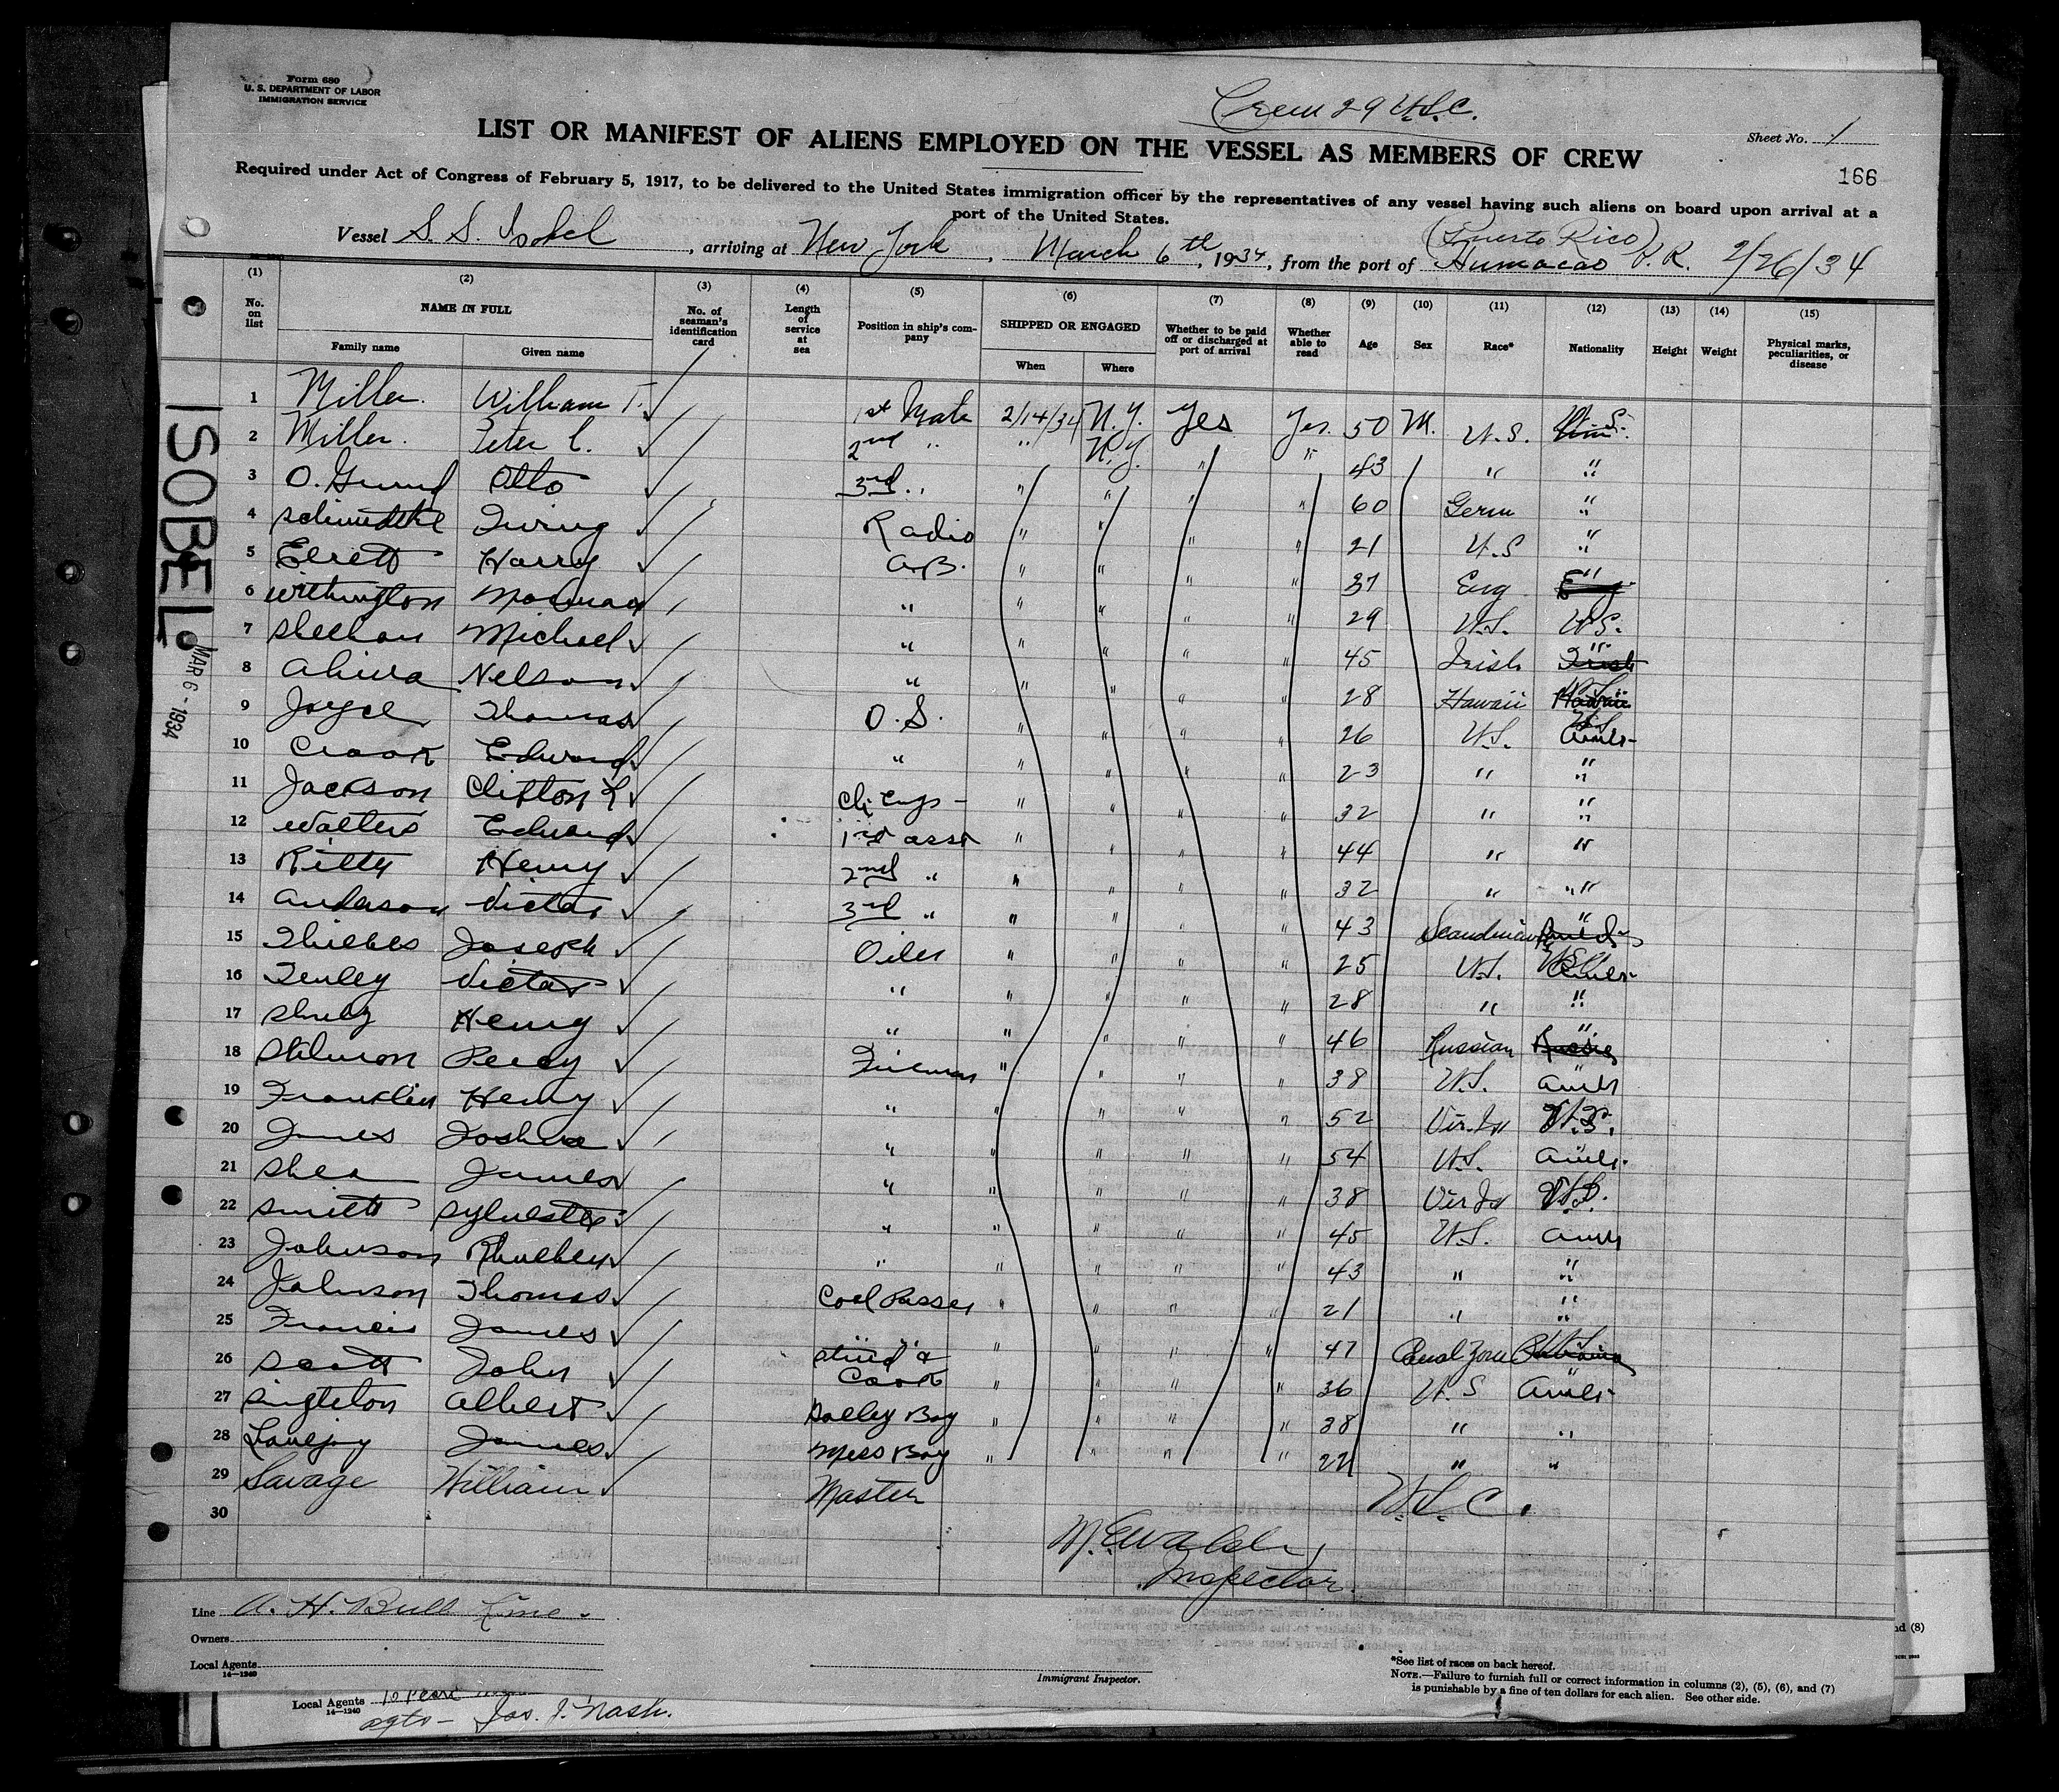 Form 680
U. S. DEPARTMENT OF LABOR
IMMIGRATION SERVICE
Crew 29 U.S.C.
LIST OR MANIFEST OF ALIENS EMPLOYED ON THE VESSEL AS MEMBERS OF CREW
Sheet No. 1
166
Required under Act of Congress of February 5, 1917, to be delivered to the United States immigration officer by the representatives of any vessel having such aliens on board upon arrival at a
port of the United States.
(Puerto Rico)
Vessel S. S. Isobel, arriving at New York, March 6th, 1934, from the port of Humacao P. R. 2/26/34
(1) (2) (3) (4) (5) (6) (7) (8) (9) (10) (11) (12) (13) (14) (15)
No. on list NAME IN FULL No. of seaman's identification card Length of service at sea Position in ship's company SHIPPED OR ENGAGED Whether to be paid off or discharged at port of arrival Whether able to read Age Sex Race* Nationality Height Weight Physical marks, peculiarities, or disease
Family name Given name When Where
1 Miller William T. 1st Mate 2/14/34 N.Y. Yes Yes 50 M. U.S. U.S.
2 Miller Peter C. 2nd " " N.Y. " " 43 " "
3 Otto 3rd " " " " " 60 Germ "
4 Irving Radio " " " " 21 U.S "
5 Harry A.B. " " " " 37 Eng "
6 Withington " " " " " 29 U.S. U.S.
7 Sheehan Michael " " " " " 45 Irish "
8 Nelson " " " " " 28 Hawaii U.S.
9 Joyce Thomas O.S. " " " " 26 U.S. U.S.
10 Crook Edward " " " " " 23 " "
11 Jackson Clifton L Ch. Eng- " " " " 32 " "
12 Walters Edward 1st asst " " " " 44 " "
13 Henry 2nd " " " " " 32 " "
14 Anderson Victor 3rd " " " " " 43 Scandinavi "
15 Joseph Oiler " " " " 25 U.S. U.S.
16 Victor " " " " " 28 " "
17 Henry " " " " " 46 Russian "
18 Percy Fireman " " " " 38 U.S. Amer
19 Franklin Henry " " " " " 52 Vir. Isl U.S.
20 Joshua " " " " " 54 U.S. Amer.
21 Shea James " " " " " 38 Vir Isl U.S.
22 Smith Sylvester " " " " " 45 U.S. Amer
23 Johnson " " " " " 43 " "
24 Johnson Thomas Coal Passer " " " " 21 " "
25 Francis James " " " " " 47 Canal Zone U.S.
26 Scott John Stew'd & Cook " " " " 36 U.S Amer-
27 Singleton Albert Galley Boy " " " " 38 " "
28 Lovejoy James Mess Boy " " " " 22 " "
29 Savage William Master U.S.C.
30
M. E. Walsh,
Inspector.
ISOBEL
MAR 6 - 1934
Line A. H. Bull Line.
Owners
Local Agents
14-1240
Immigrant Inspector.
*See list of races on back hereof.
NOTE.—Failure to furnish full or correct information in columns (2), (5), (6), and (7)
is punishable by a fine of ten dollars for each alien. See other side.
nd (8)
Local Agents
14-1240
agts - Jas. J. Nash.